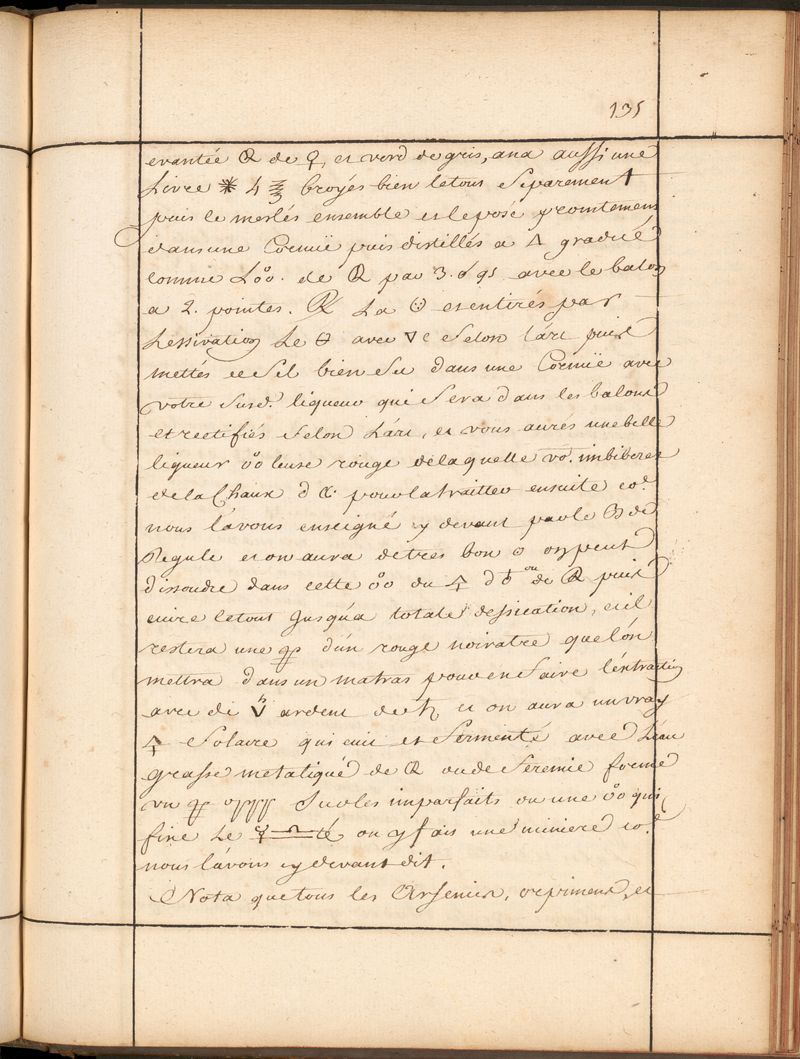 135
evantée de ♀, et verd de gris, ana aussi une
Livre 4 ℥ broyés bien le tout Separement
puis le meslés ensemble et le posé promtement
dans une Cornuë puis distillés a 🜂 gradué
comme L'o°o. de par avec le balon
a 2. pointes. ℞ La et en tirés par
Lessivation Le 🜔 avec Selon l'art puis
mettés ce Sel bien Sec dans une Cornuë avec
votre Susd. liqueur qui Sera dans les balons
et rectifiés Selon L'art, et vous aurés une belle
liqueur o°oleuse rouge de laquelle vo. imbiberes
de la Chaux d pour la traitter ensuite co.e
nous l'avons enseigné cy devant par le de
Regule et on aura de tres bon on peut
dissoudre dans cette o°o du 🜍 d ou de puis
cuire le tout Jusqu'a totale dessication, et il
restera une d'un rouge noiratre que l'on
mettra dans un matras pour en faire l'extraction
avec de 🜄 ardent de ♄ et on aura un vray
🜍 Solaire qui cuit et fermenté avec L'eau
grasse metalique de ou de Feremie forme
un Sur les imparfaits ou une o°o qui
fixe Le ou y fais une miniere co.e
nous l'avons cy devant dit.
Nota que tous les Arsenics, et